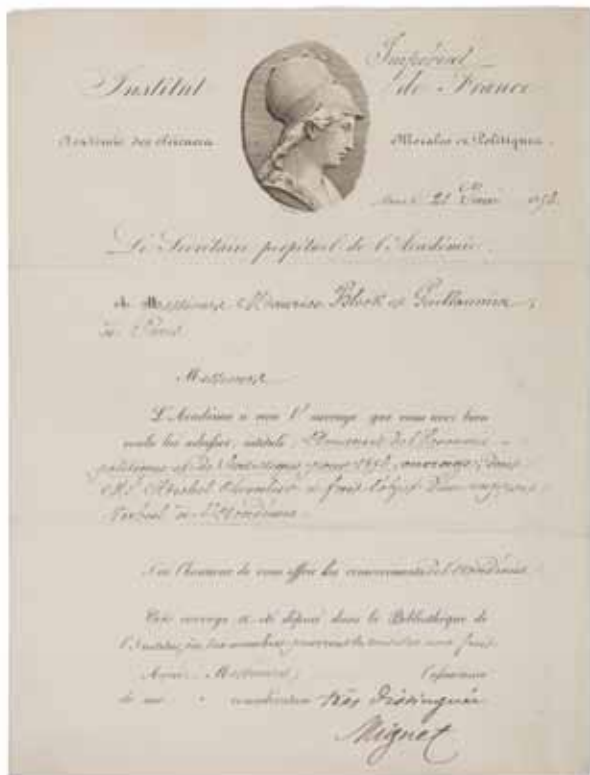 Institut Impérial de France
Académie des Sciences Morales et Politiques.
21 1858
Le Secrétaire perpétuel de l'Académie
à Messieurs Maurice Block et Guillaumin,
à Paris
Messieurs
L'Académie a reçu l'ouvrage que vous avez bien
voulu lui adresser, intitulé: Annuaire de l'Économie
politique et de Statistique pour 1858, ouvrage, dont
Mr Michel Chevalier a fait l'objet d'un rapport
verbal à l'Académie
J'ai l'honneur de vous offrir les remerciements de l'Académie
Cet ouvrage a été déposé dans la Bibliothèque de
l'Institut, où les membres pourront le consulter avec fruit
Agréez, Messieurs, l'assurance
de ma considération très distinguée
Mignet